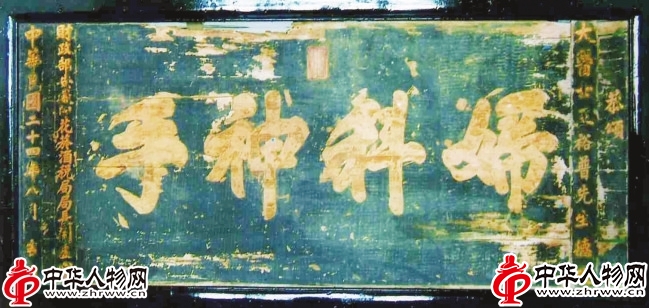 恭頌
大醫士裕普先生
婦科神手
財政部花筵酒稅局局長
中華民國二十四年八
中华人物网
www.zhrww.cn
中华人物网
www.zhrww.cn